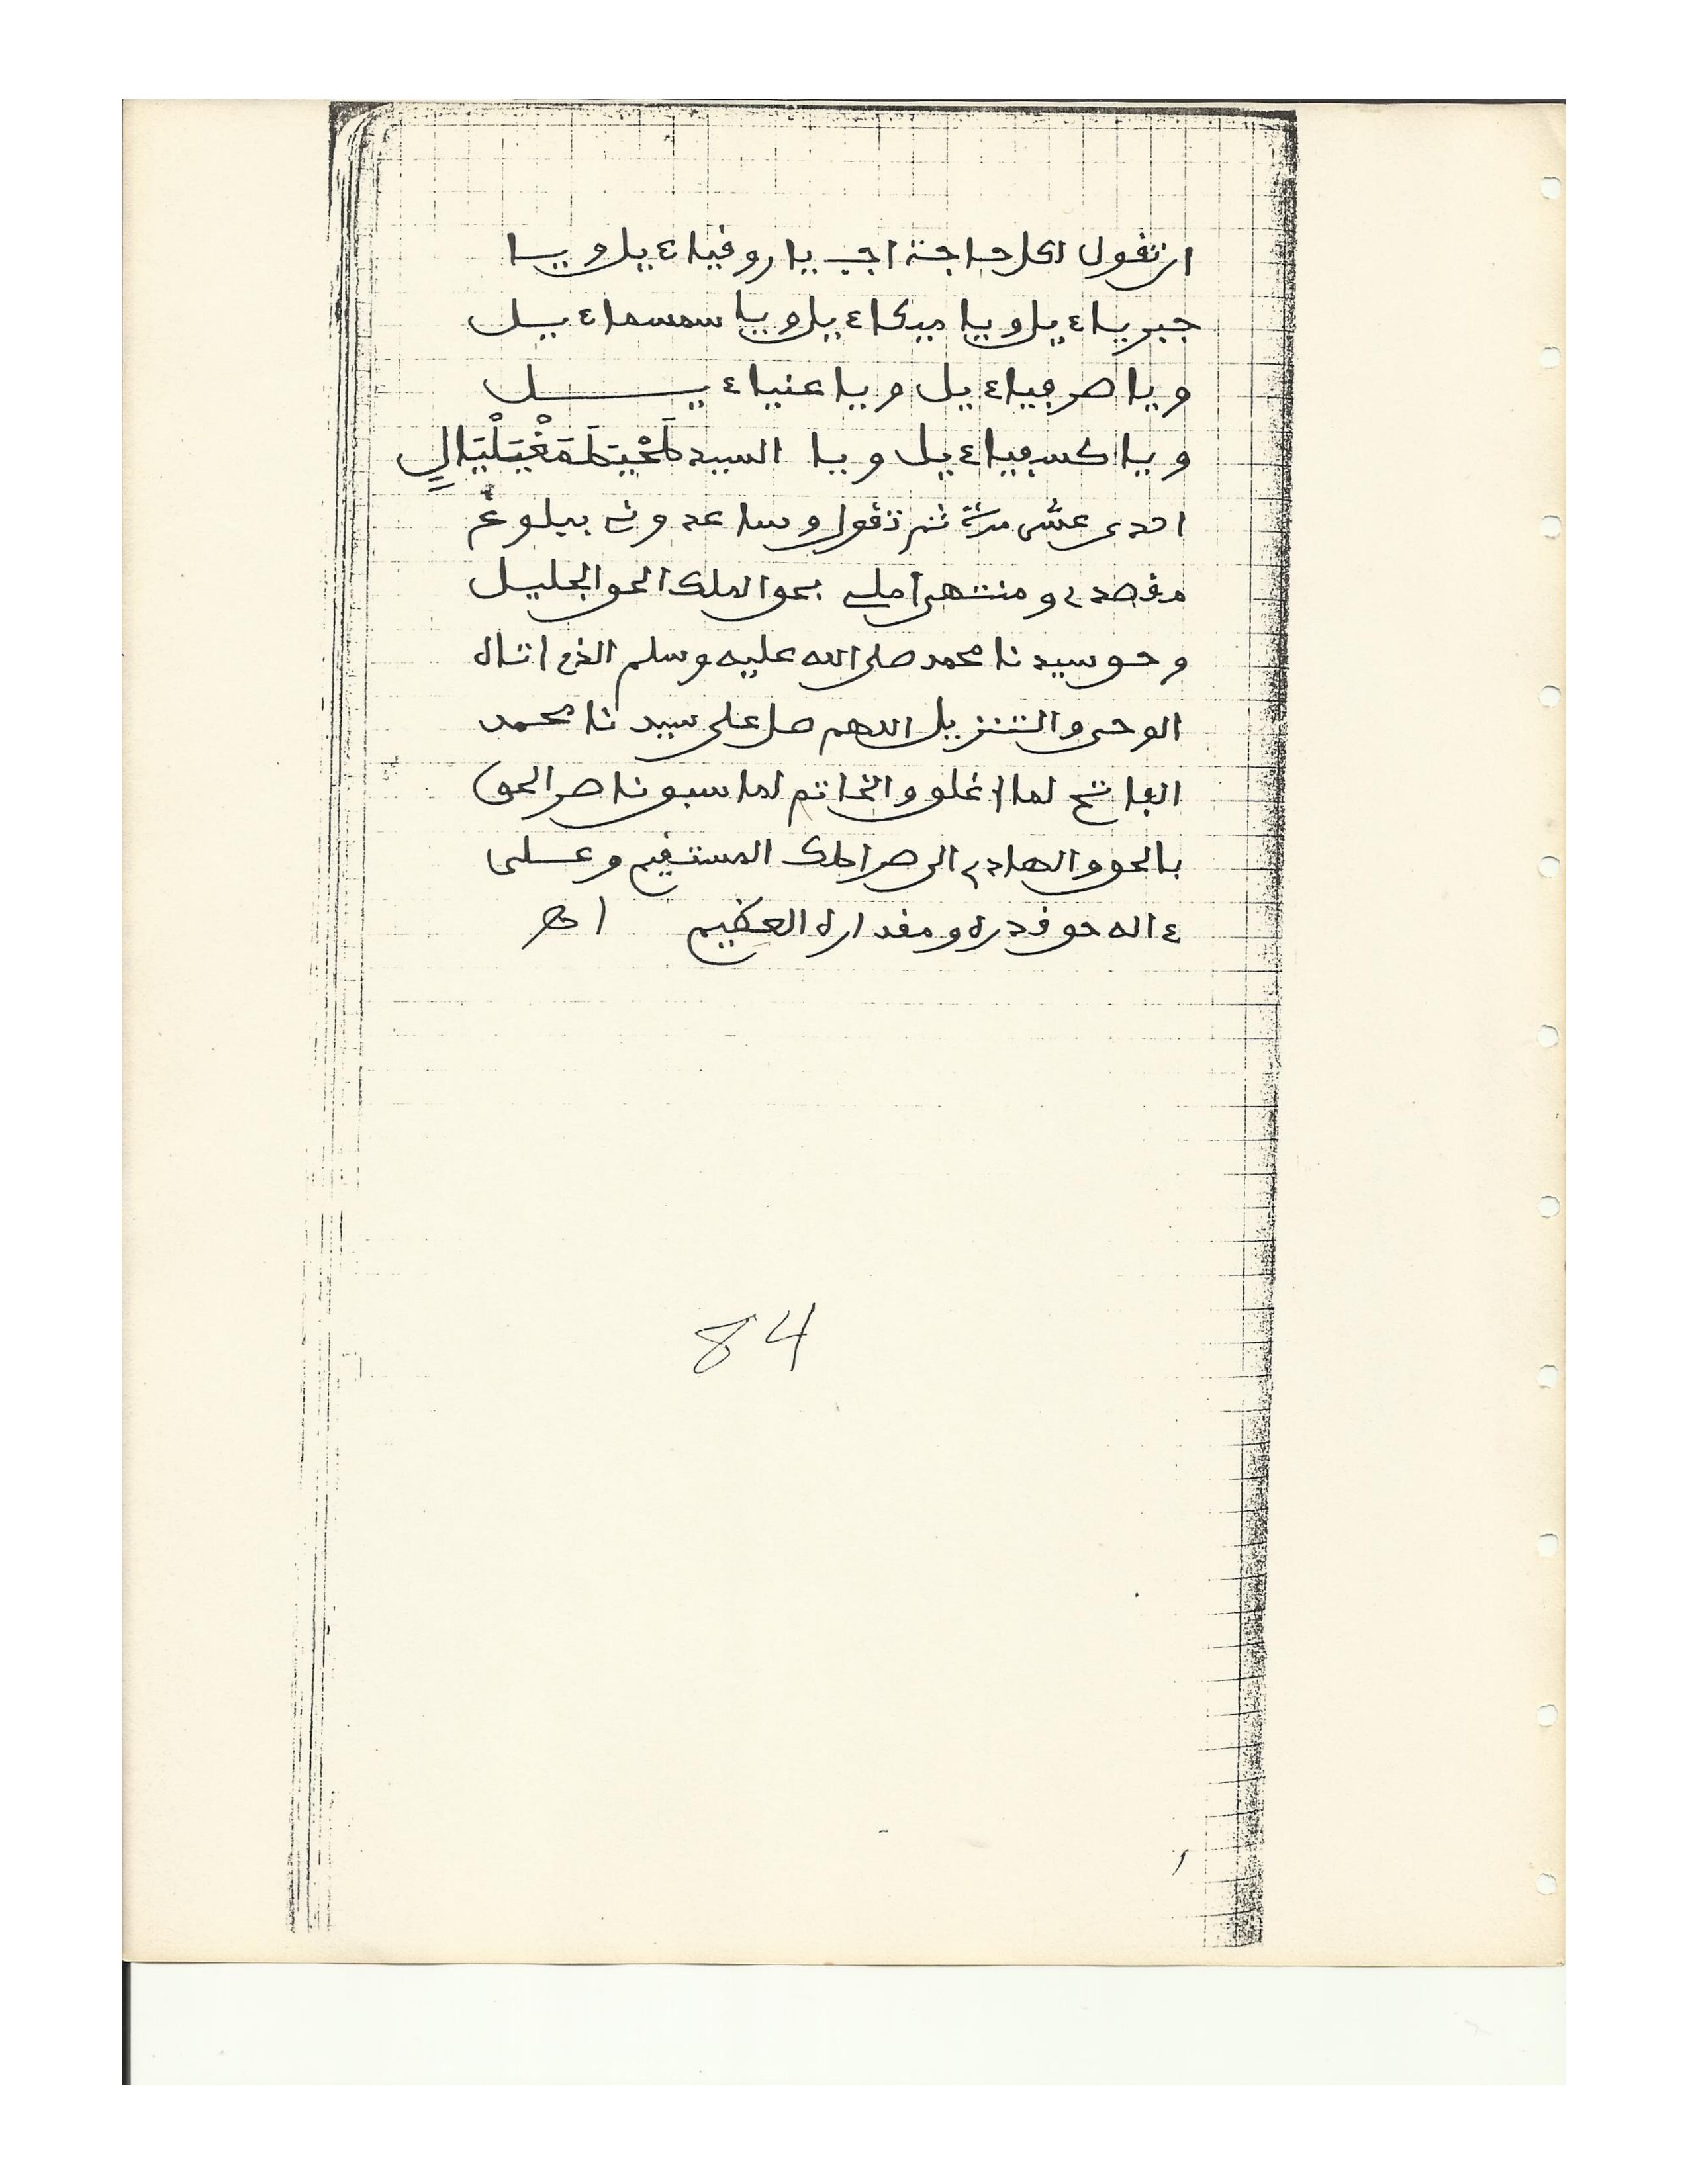 ان تقول لكل حاجة اجب يا روقياءيل ويا
جبرياءيل ويا ميكاءيل ويا سمسماءيل
ويا صرفياءيل ويا عنياءيل
ويا كسفياءيل ويا السيد طَحْيَطَمَغْيَلْيَالٍ
احدى عشر مرة ثم تقول وساعدونى ببلوغ
مقصدى ومنتهى املى بحق الملك الحق الجليل
وحق سيدنا محمد صلى الله عليه وسلم الذى اتاه
الوحى والتنزيل اللهم صل على سيدنا محمد
الفاتح لما اغلق والخاتم لما سبق ناصر الحق
بالحق والهادى الى صراطك المستقيم وعلى
ءاله حق قدره ومقداره العظيم اهـ
84